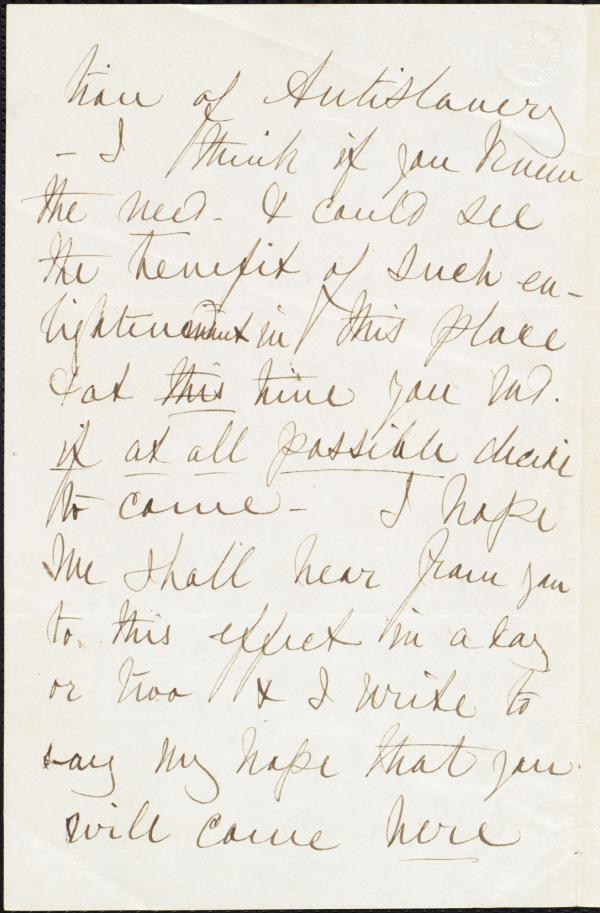 tion of Antislavery
- I think if you knew
the need - & could see
the benefit of such en-
lightenment in this place
& at this time you wd.
if at all possible decide
to come - I hope
we shall hear from you
to this effect in a day
or two & I write to
say my hope that you
will come here